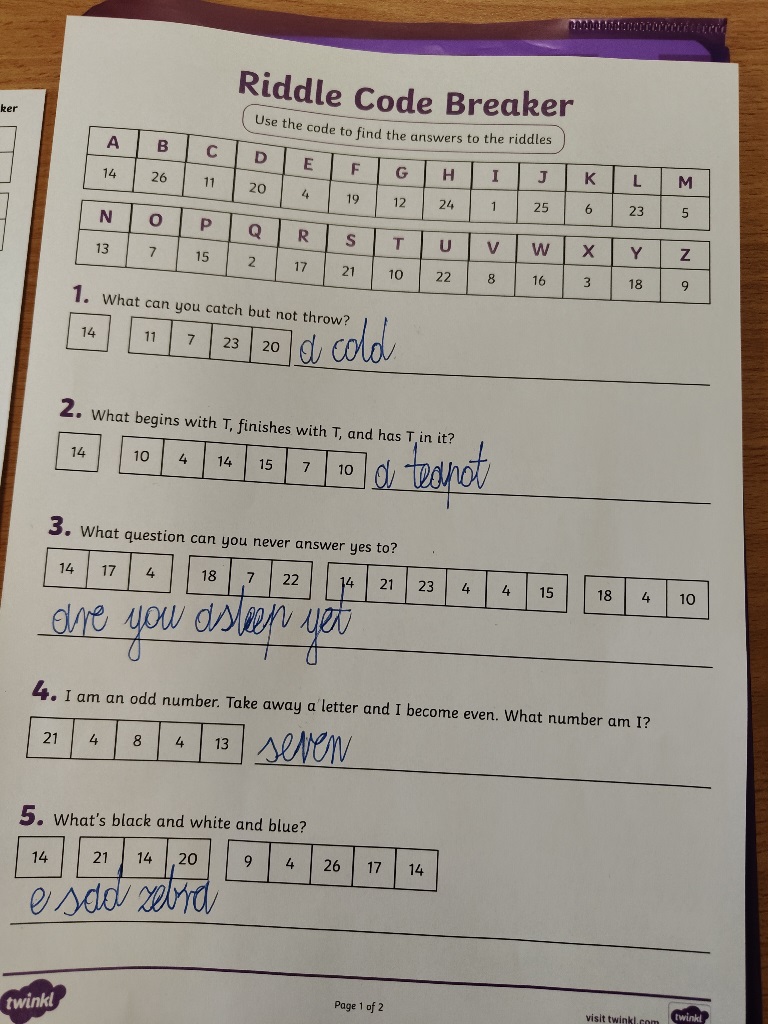 ker
Riddle Code Breaker
Use the code to find the answers to the riddles
A B C D E F G H I J K L M
14 26 11 20 4 19 12 24 1 25 6 23 5
N O P Q R S T U V W X Y Z
13 7 15 2 17 21 10 22 8 16 3 18 9
1. What can you catch but not throw?
14 11 7 23 20 a cold
2. What begins with T, finishes with T, and has T in it?
14 10 4 14 15 7 10 a teapot
3. What question can you never answer yes to?
14 17 4 18 7 22 14 21 23 4 4 15 18 4 10
are you asleep yet
4. I am an odd number. Take away a letter and I become even. What number am I?
21 4 8 4 13 seven
5. What's black and white and blue?
14 21 14 20 9 4 26 17 14
e sad zebra
twinkl Page 1 of 2 visit twinkl.com twinkl